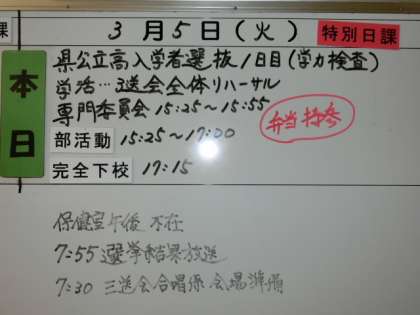 課
3月5日(火)
特別日課
本日
県公立高入学者選抜1日目(学力検査)
学活…3送会全体リハーサル
専門委員会 15:25～15:55
弁当持参
部活動 15:25～17:00
完全下校 17:15
保健室午後 不在
7:55 選挙結果放送
7:30 三送会合唱係 会場準備